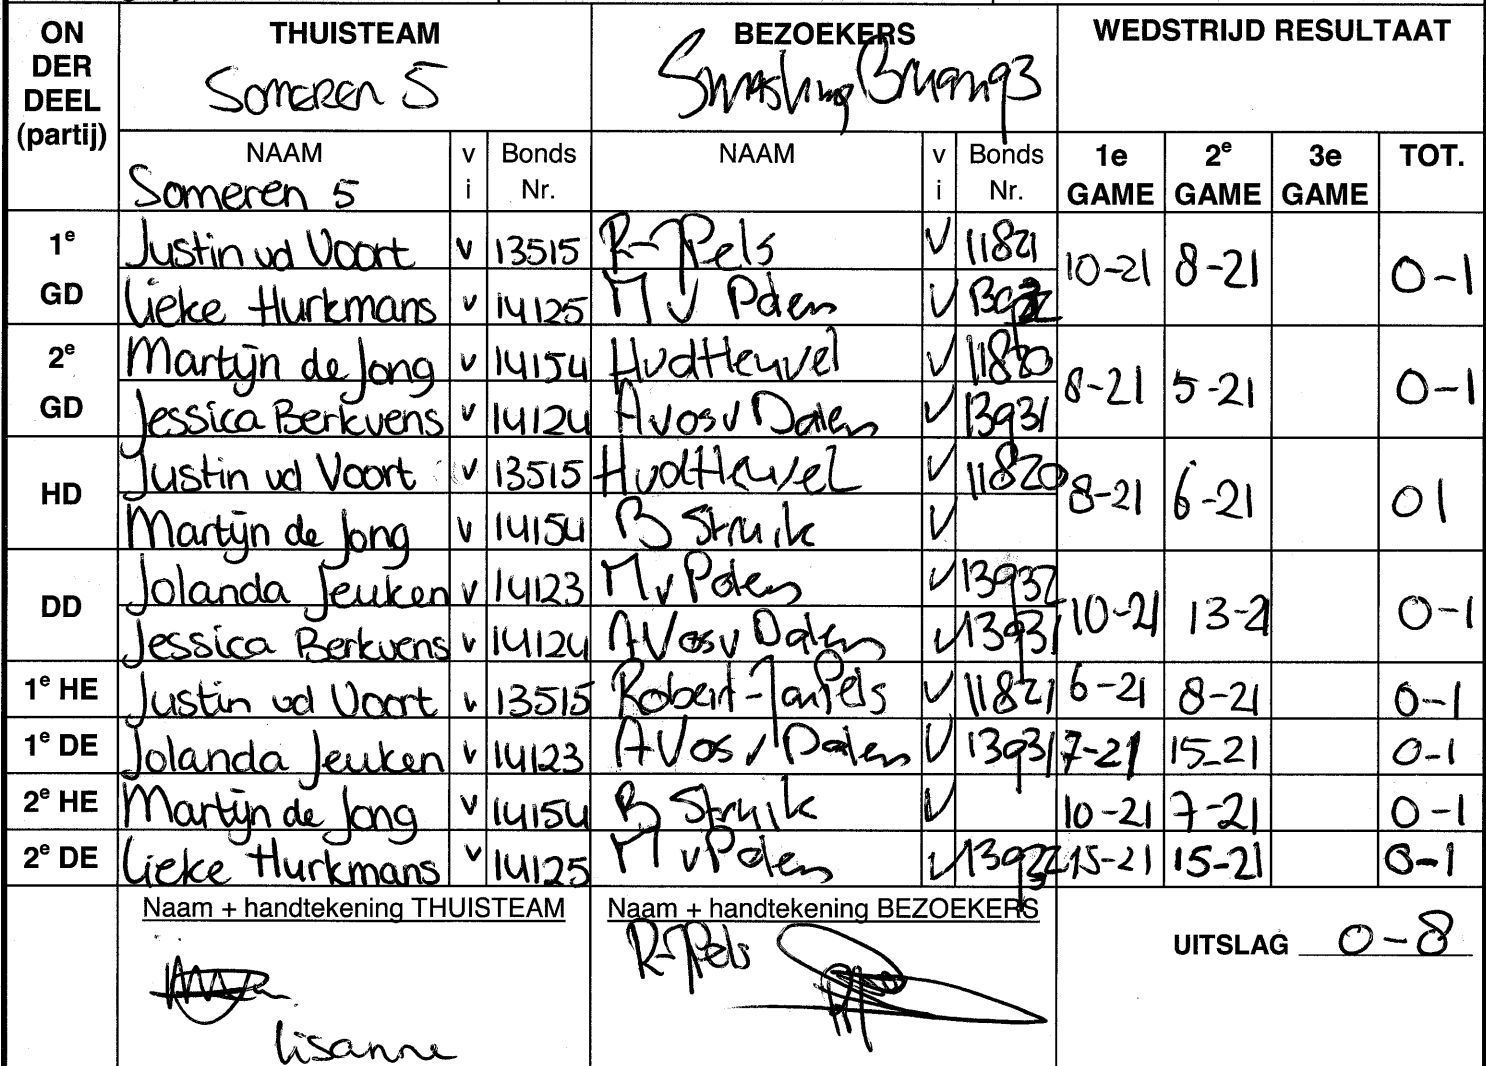 ON DER DEEL (partij) THUISTEAM BEZOEKERS WEDSTRIJD RESULTAAT
Someren 5 Smashing
NAAM v i Bonds Nr. NAAM v i Bonds Nr. 1e GAME 2e GAME 3e GAME TOT.
Someren 5
1e GD Justin vd Voort v 13515 R-J Pels v 11821 10-21 8-21 0-1
Lieke Hurkmans v 14125 M v Dalen v
2e GD Martijn de Jong v 14154 HvdHeuvel v 11820 8-21 5-21 0-1
Jessica Berkvens v 14124 A Vos v Dalen v 13931
HD Justin vd Voort v 13515 HvdHeuvel v 11820 8-21 6-21 0 1
Martijn de Jong v 14154 B Struik v
DD Jolanda Jeuken v 14123 M v Dalen v 13932 10-21 13-2 0-1
Jessica Berkvens v 14124 A Vos v Dalen v 13931
1e HE Justin vd Voort v 13515 Robert-Jan Pels v 11821 6-21 8-21 0-1
1e DE Jolanda Jeuken v 14123 A Vos v Dalen v 13931 7-21 15-21 0-1
2e HE Martijn de Jong v 14154 B Struik v 10-21 7-21 0-1
2e DE Lieke Hurkmans v 14125 M v Dalen v 13932 15-21 15-21 0-1
Naam + handtekening THUISTEAM Naam + handtekening BEZOEKERS
R-J Pels UITSLAG 0-8
Lisanne